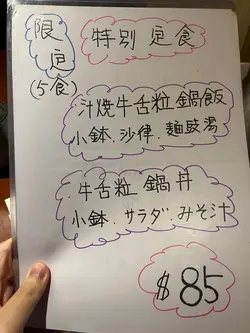 限定
(5食)
特別定食
汁焼牛舌粒鍋飯
小鉢.沙律.麵豉湯
牛舌粒鍋丼
小鉢.サラダ.みそ汁
$85